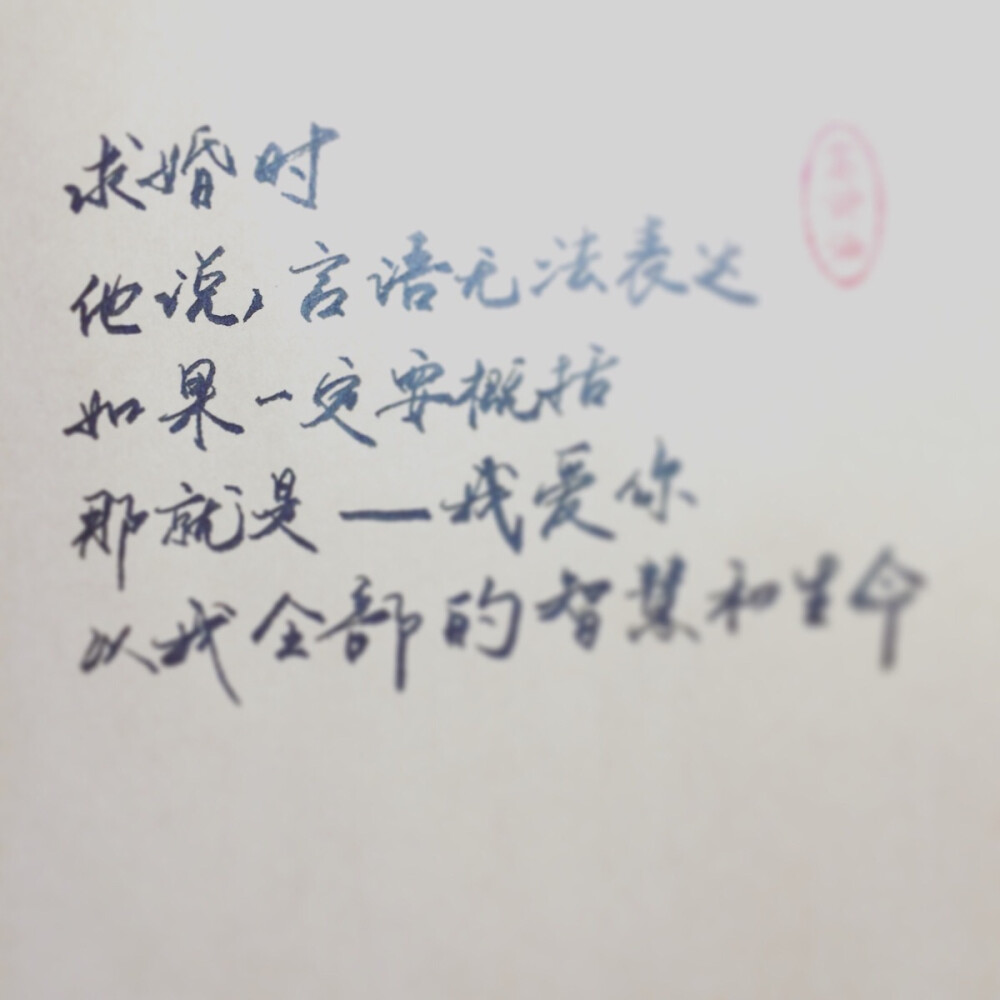 求婚时
他说，言语无法表达
如果一定要概括
那就是—我爱你
以我全部的智慧和生命